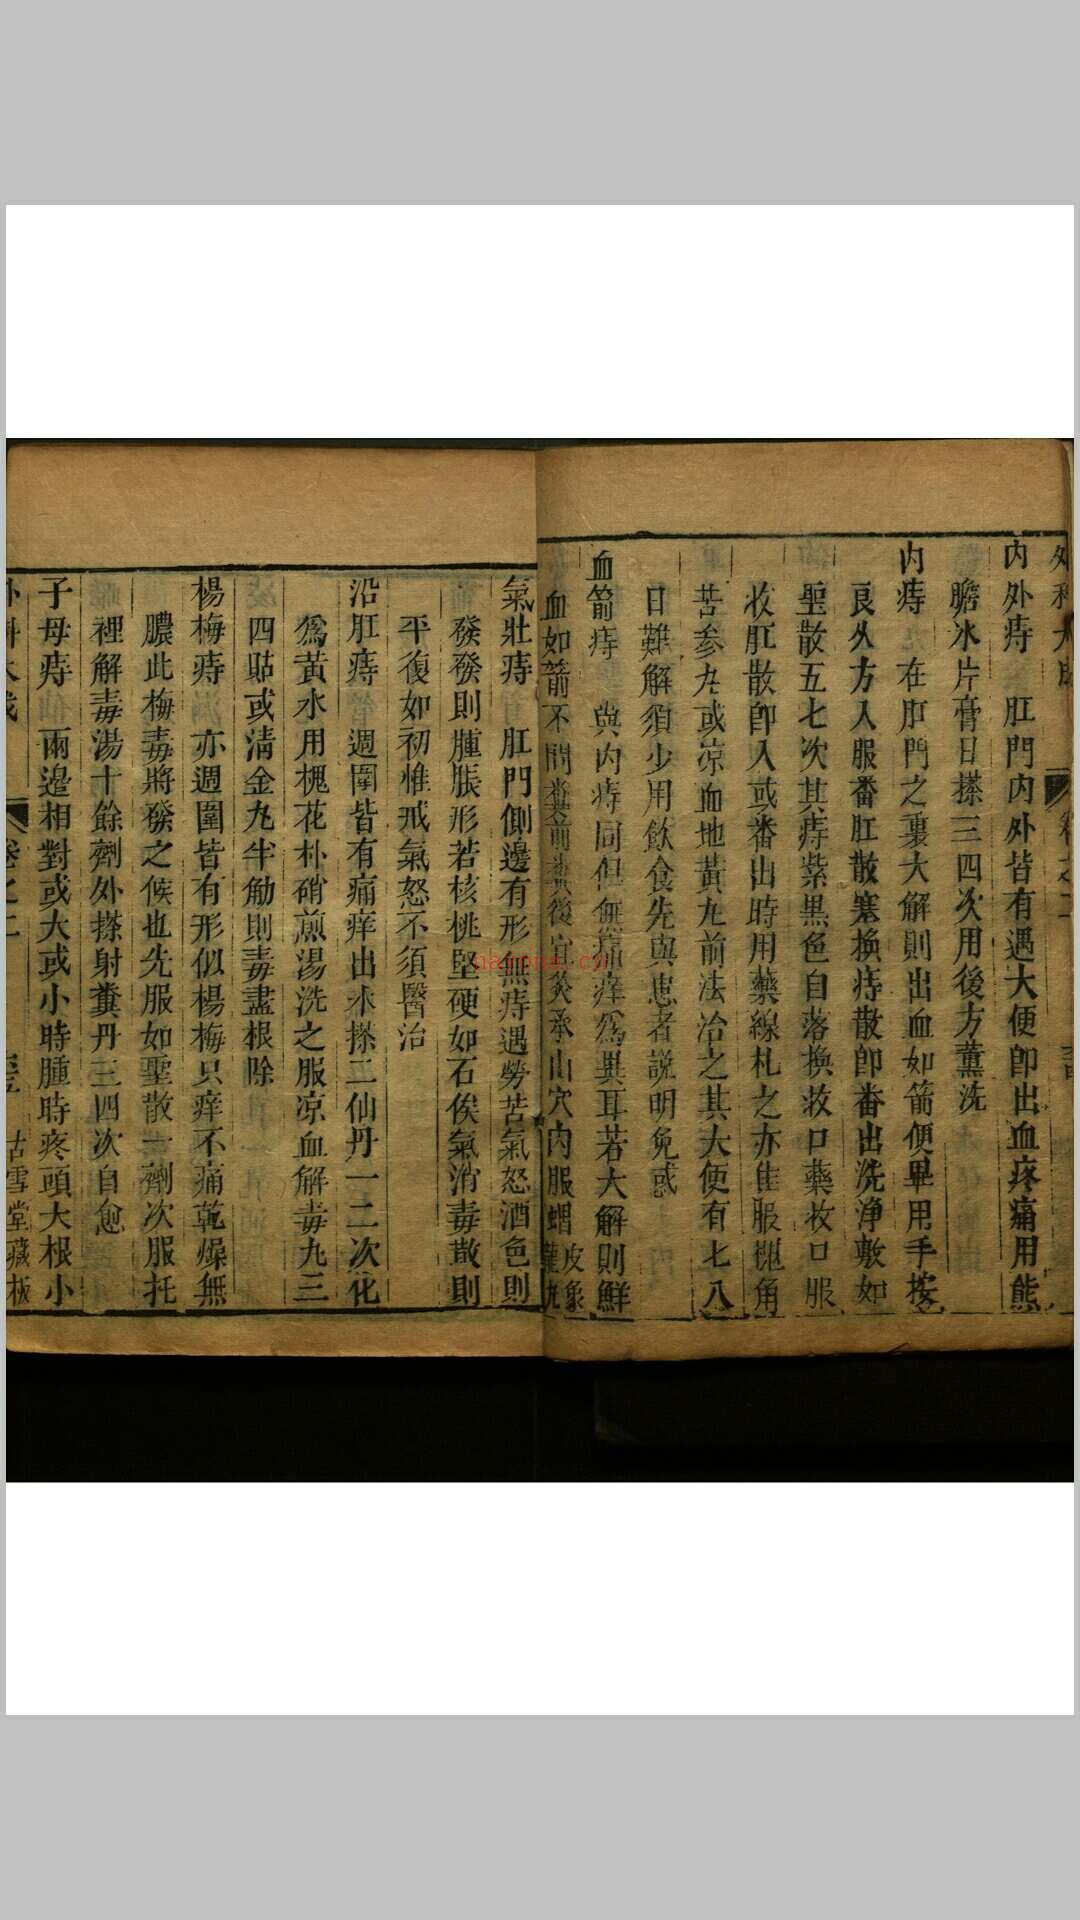 外科大成
內外痔　肛門內外皆有遇大便卽出血疼痛用熊
膽冰片膏日搽三四次用後方薰洗
內痔　在肛門之裏大解則出血如箭便畢用手按
良久方入服番肛散塞換痔散卽番出洗淨敷如
聖散五七次其痔紫黑色自落換收口藥收口服
收肛散卽入或番出時用藥線札之亦佳服槐角
苦參丸或凉血地黃丸前法治之其大便有七八
日難解須少用飲食先與患者說明免惑
血箭痔　與內痔同但無痛痒爲異耳若大解則鮮
血如箭不問糞前糞後宜灸承山穴內服蝟皮象
氣壯痔　肛門側邊有形無痔遇勞苦氣怒酒色則
發發則腫脹形若核桃堅硬如石俟氣消毒散則
平復如初惟戒氣怒不須醫治
沿肛痔　週圍皆有痛痒出水搽二仙丹一二次化
爲黃水用槐花朴硝煎湯洗之服凉血解毒丸三
四貼或淸金丸半觔則毒盡根除
楊梅痔　亦週圍皆有形似楊梅只痒不痛乾燥無
膿此梅毒將發之候也先服如聖散一劑次服托
裡解毒湯十餘劑外搽射糞丹三四次自愈
子母痔　兩邊相對或大或小時腫時疼頭大根小
卷之二
古雪堂藏板
nayona.cn